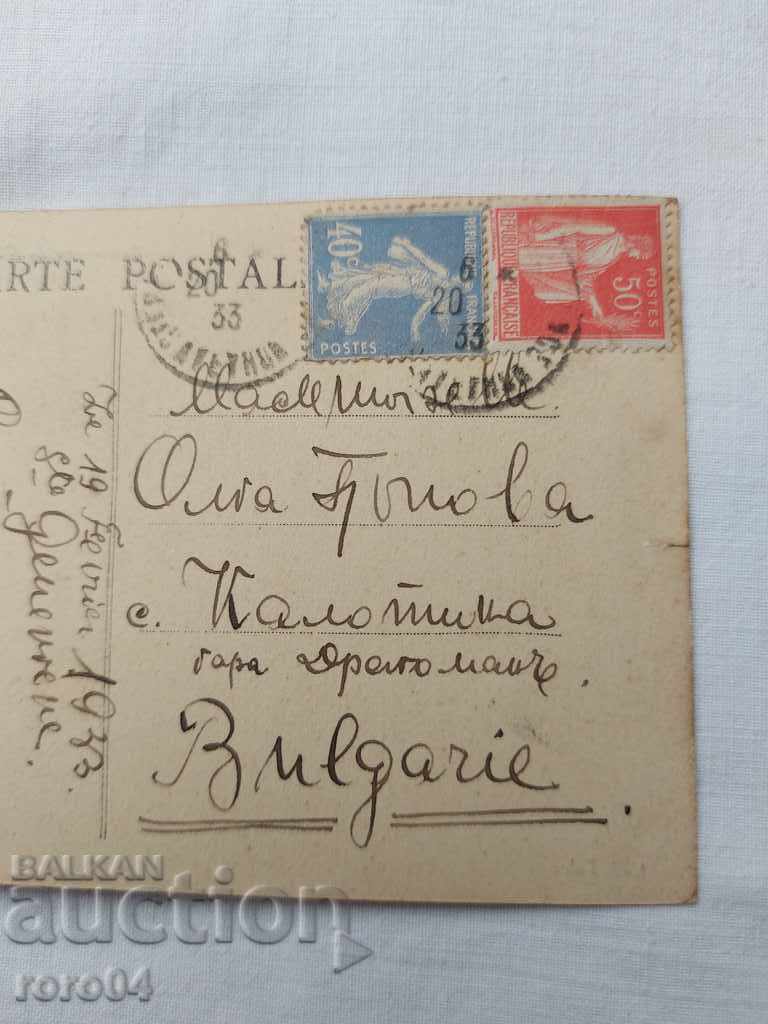 RTE POSTAL
6
20
33
40c
REPUBLIQUE FRANC
POSTES
6
20
33
REPUBLIQUE FRANÇAISE
50c
POSTES
Mademoiselle
Олга
с. Калотина
гара Драгоманъ.
Bulgarie.
Le 19 Fevrier 1933.
Ste Geneviene.
BALKAN
auction
roro04